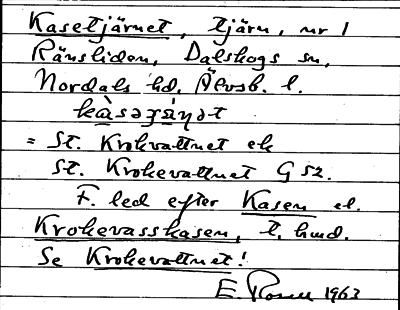 Kasetjärnet, tjärn, nr 1
Ränsliden, Dalskogs sn,
Nordals hd, Älvsb. l.
= St. Krokvattnet ek
St. Krokevattnet G 52.
F. led efter Kasen el.
Krokevasskasen, t. hmd.
Se Krokevattnet!
E. Rosen 1963